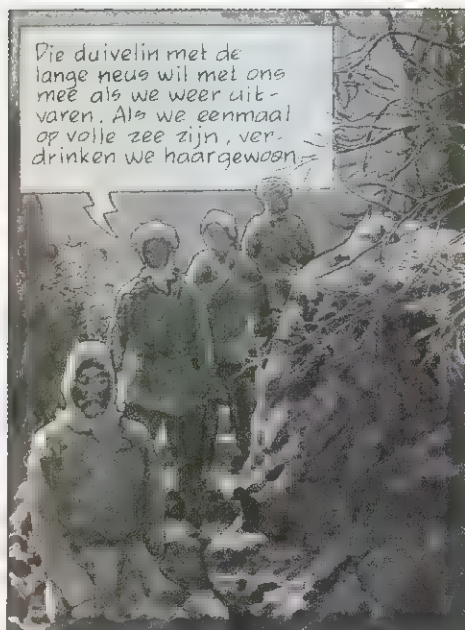 Die duivelin met de
lange neus wil met ons
mee als we weer uit-
varen. Als we eenmaal
op volle zee zijn, ver-
drinken we haar gewoon.